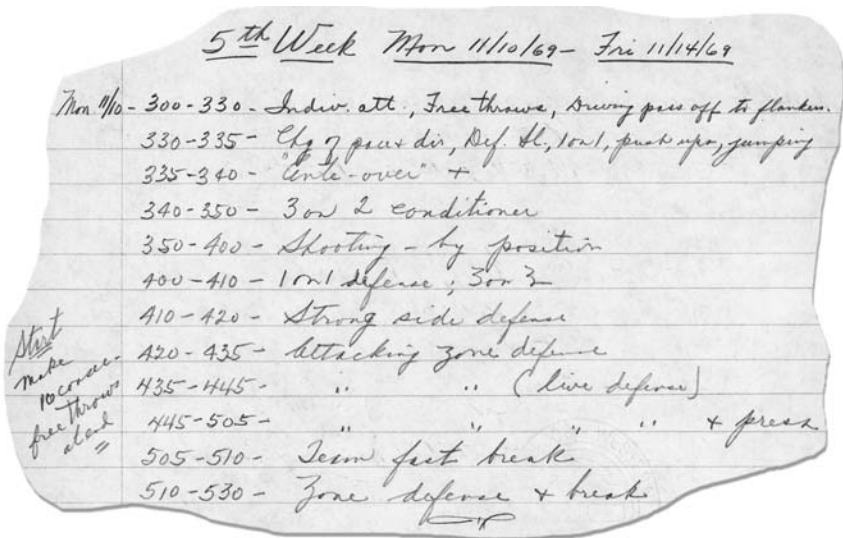 5th Week Mon 11/10/69 - Fri 11/14/69
Mon 11/10 - 300-330 - Indiv. att., Free throws, Driving pass off to flankers.
330-335 - Chg of pace & dir, Def. sl., 1 on 1, push ups, jumping
335-340 - "Ante-over" +
340-350 - 3 on 2 conditioner
350-400 - Shooting - by position
400-410 - 1 on 1 defense; 3 on 3
410-420 - Strong side defense
420-435 - Attacking zone defense
435-445 - " " (live defense)
445-505 - " " " " + press
505-510 - Team fast break
510-530 - Zone defense + break
Start
make
10 consec.
free throws
at end